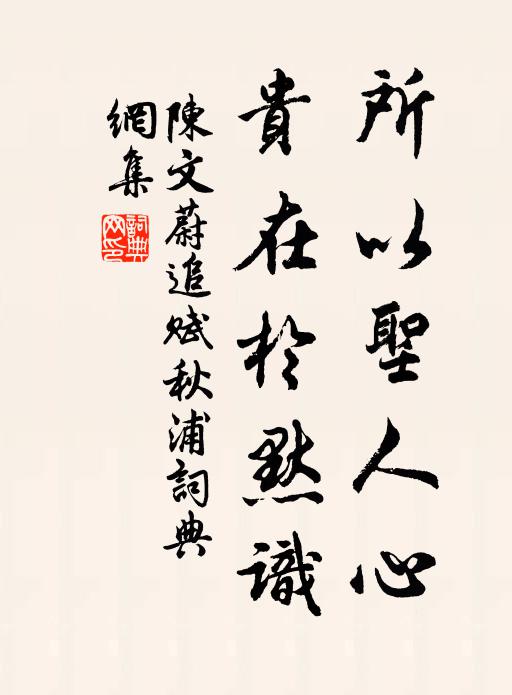 所以聖人心
貴在於默識
陳文蔚追賦秋浦詞典
網集
詞典網印